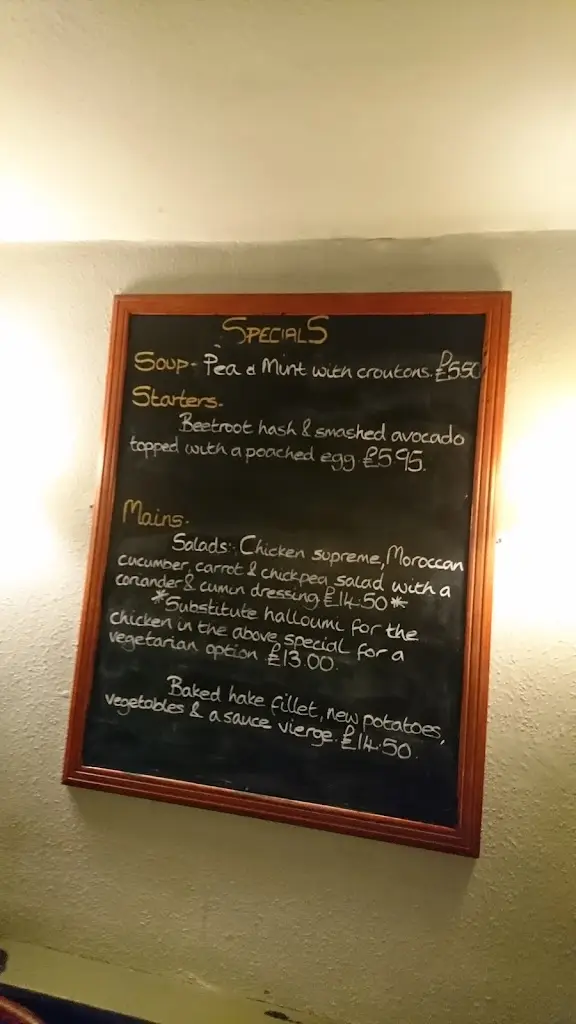 SPECIALS
Soup- Pea & Mint with croutons. £5.50
Starters.
Beetroot hash & smashed avocado
topped with a poached egg. £5.95.
Mains.
Salads:, Chicken supreme, Moroccan
cucumber, carrot & chickpea salad with a
coriander & cumin dressing £14.50 *
*Substitute halloumi for the
chicken in the above special for a
vegetarian option £13.00.
Baked hake fillet, new potatoes,
vegetables & a sauce vierge. £14.50.